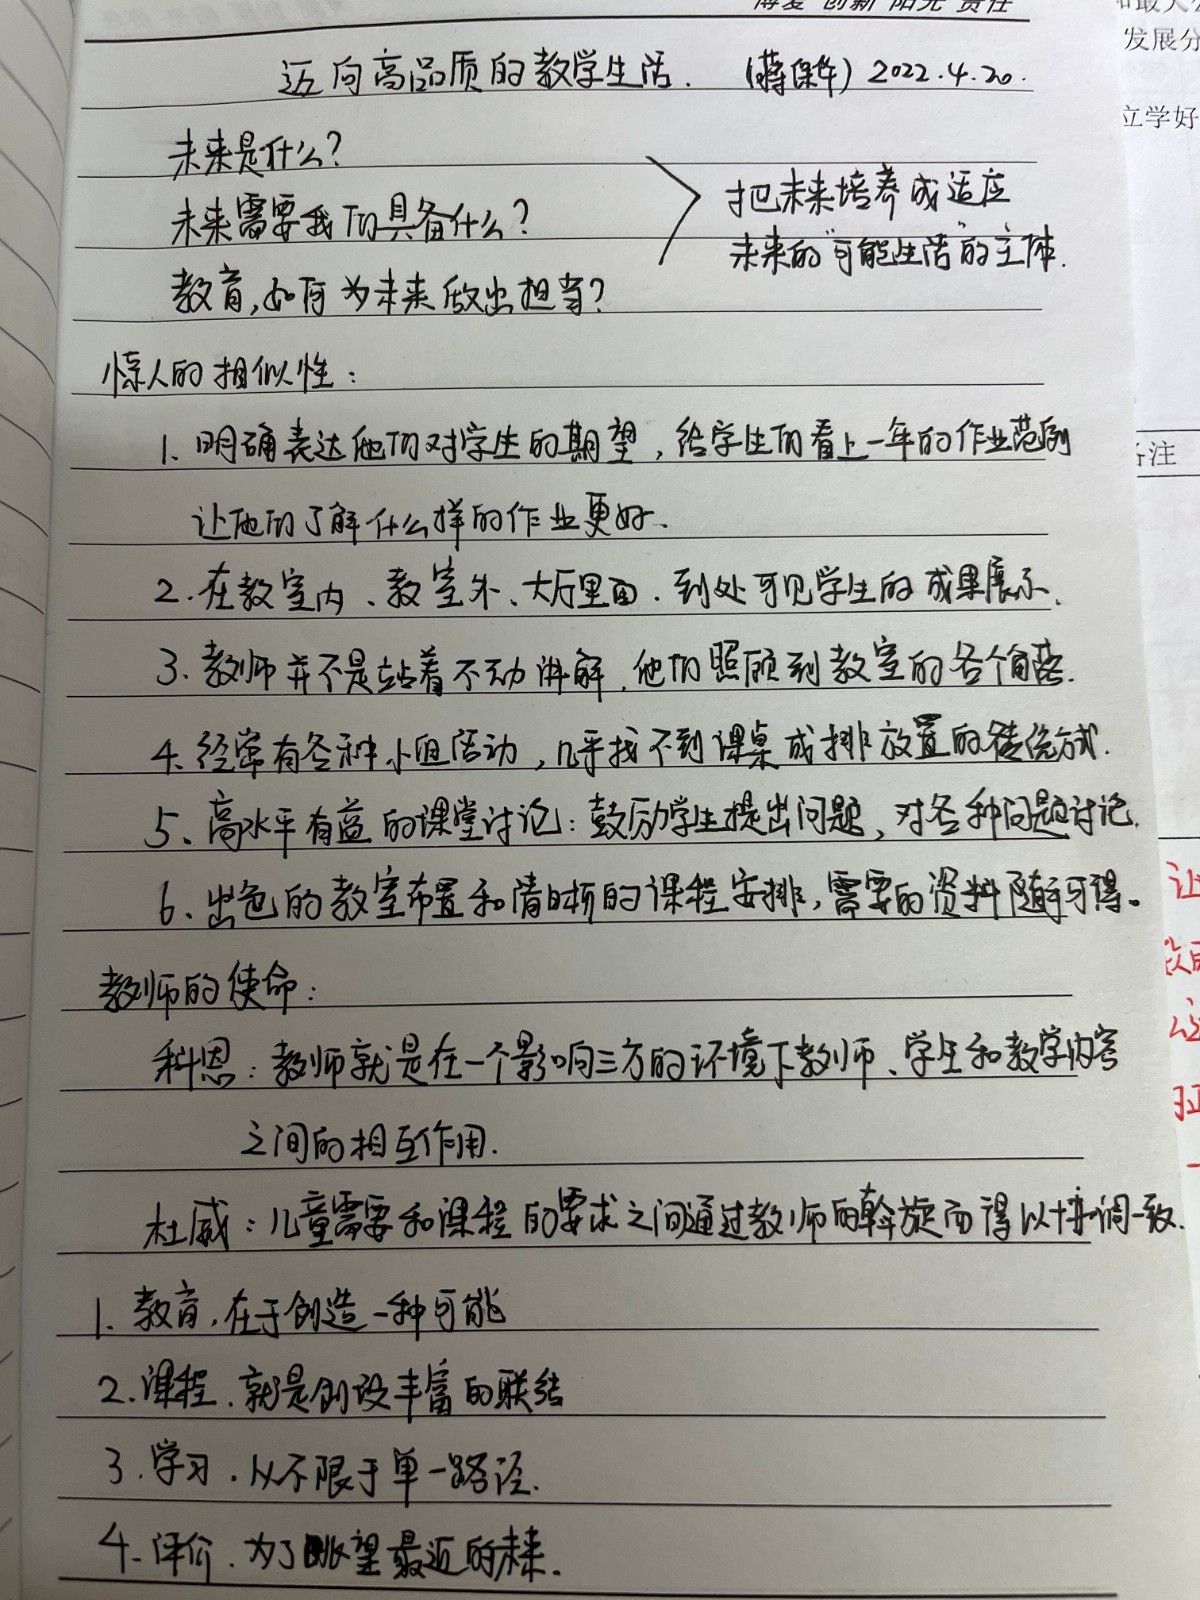 博爱 创新 阳光 责任
迈向高品质的教学生活. (蒋保华) 2022.4.20.
未来是什么?
未来需要我们具备什么?
教育,如何为未来做出担当?
把未来培养成适应
未来的"可能生活"的主体.
惊人的相似性:
1、明确表达他们对学生的期望,给学生们看上一年的作业范例
让他们了解什么样的作业更好.
2.在教室内、教室外、大厅里面.到处可见学生的成果展示.
3.教师并不是站着不动讲解.他们照顾到教室的各个角落.
4.经常有各种小组活动,几乎找不到课桌成排放置的传统方式.
5、高水平有益的课堂讨论:鼓励学生提出问题、对各种问题讨论.
6、出色的教室布置和清晰的课程安排,需要的资料随手可得。
教师的使命:
科恩:教师就是在一个影响三方的环境下教师、学生和教学内容
之间的相互作用.
杜威:儿童需要和课程的要求之间通过教师的斡旋而得以协调一致.
1.教育,在于创造一种可能
2.课程.就是创设丰富的联结
3.学习.从不限于单一路径.
4.评价.为了眺望最近的未来.
发展分
立学好
备注
让